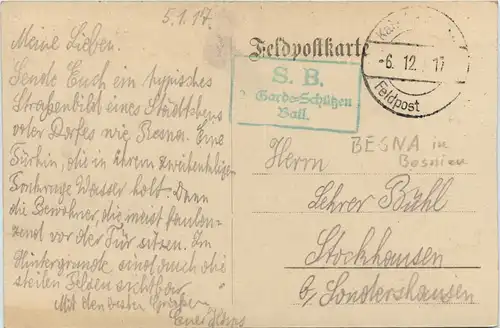 5.1.17.
Meine Lieben.
Sende Euch ein typisches
Straßenbild eines Städtchens
oder Dorfes wie Besna. Eine
Türkin, die in ihrem zweitenkligen
Wasser holt. Dann
die Bewohner, die meist faulen-
zend vor der Tür sitzen. Im
Hintergrunde sind auch die
steilen Felsen sichtbar.
Mit den besten Grüßen
Euer
Feldpostkarte
-6. 12. 17
Feldpost
S. B.
Garde-Schützen
Batl.
BEGNA in
Bosnien
Herrn
Lehrer Bühl
Stockhausen
b/ Sondershausen